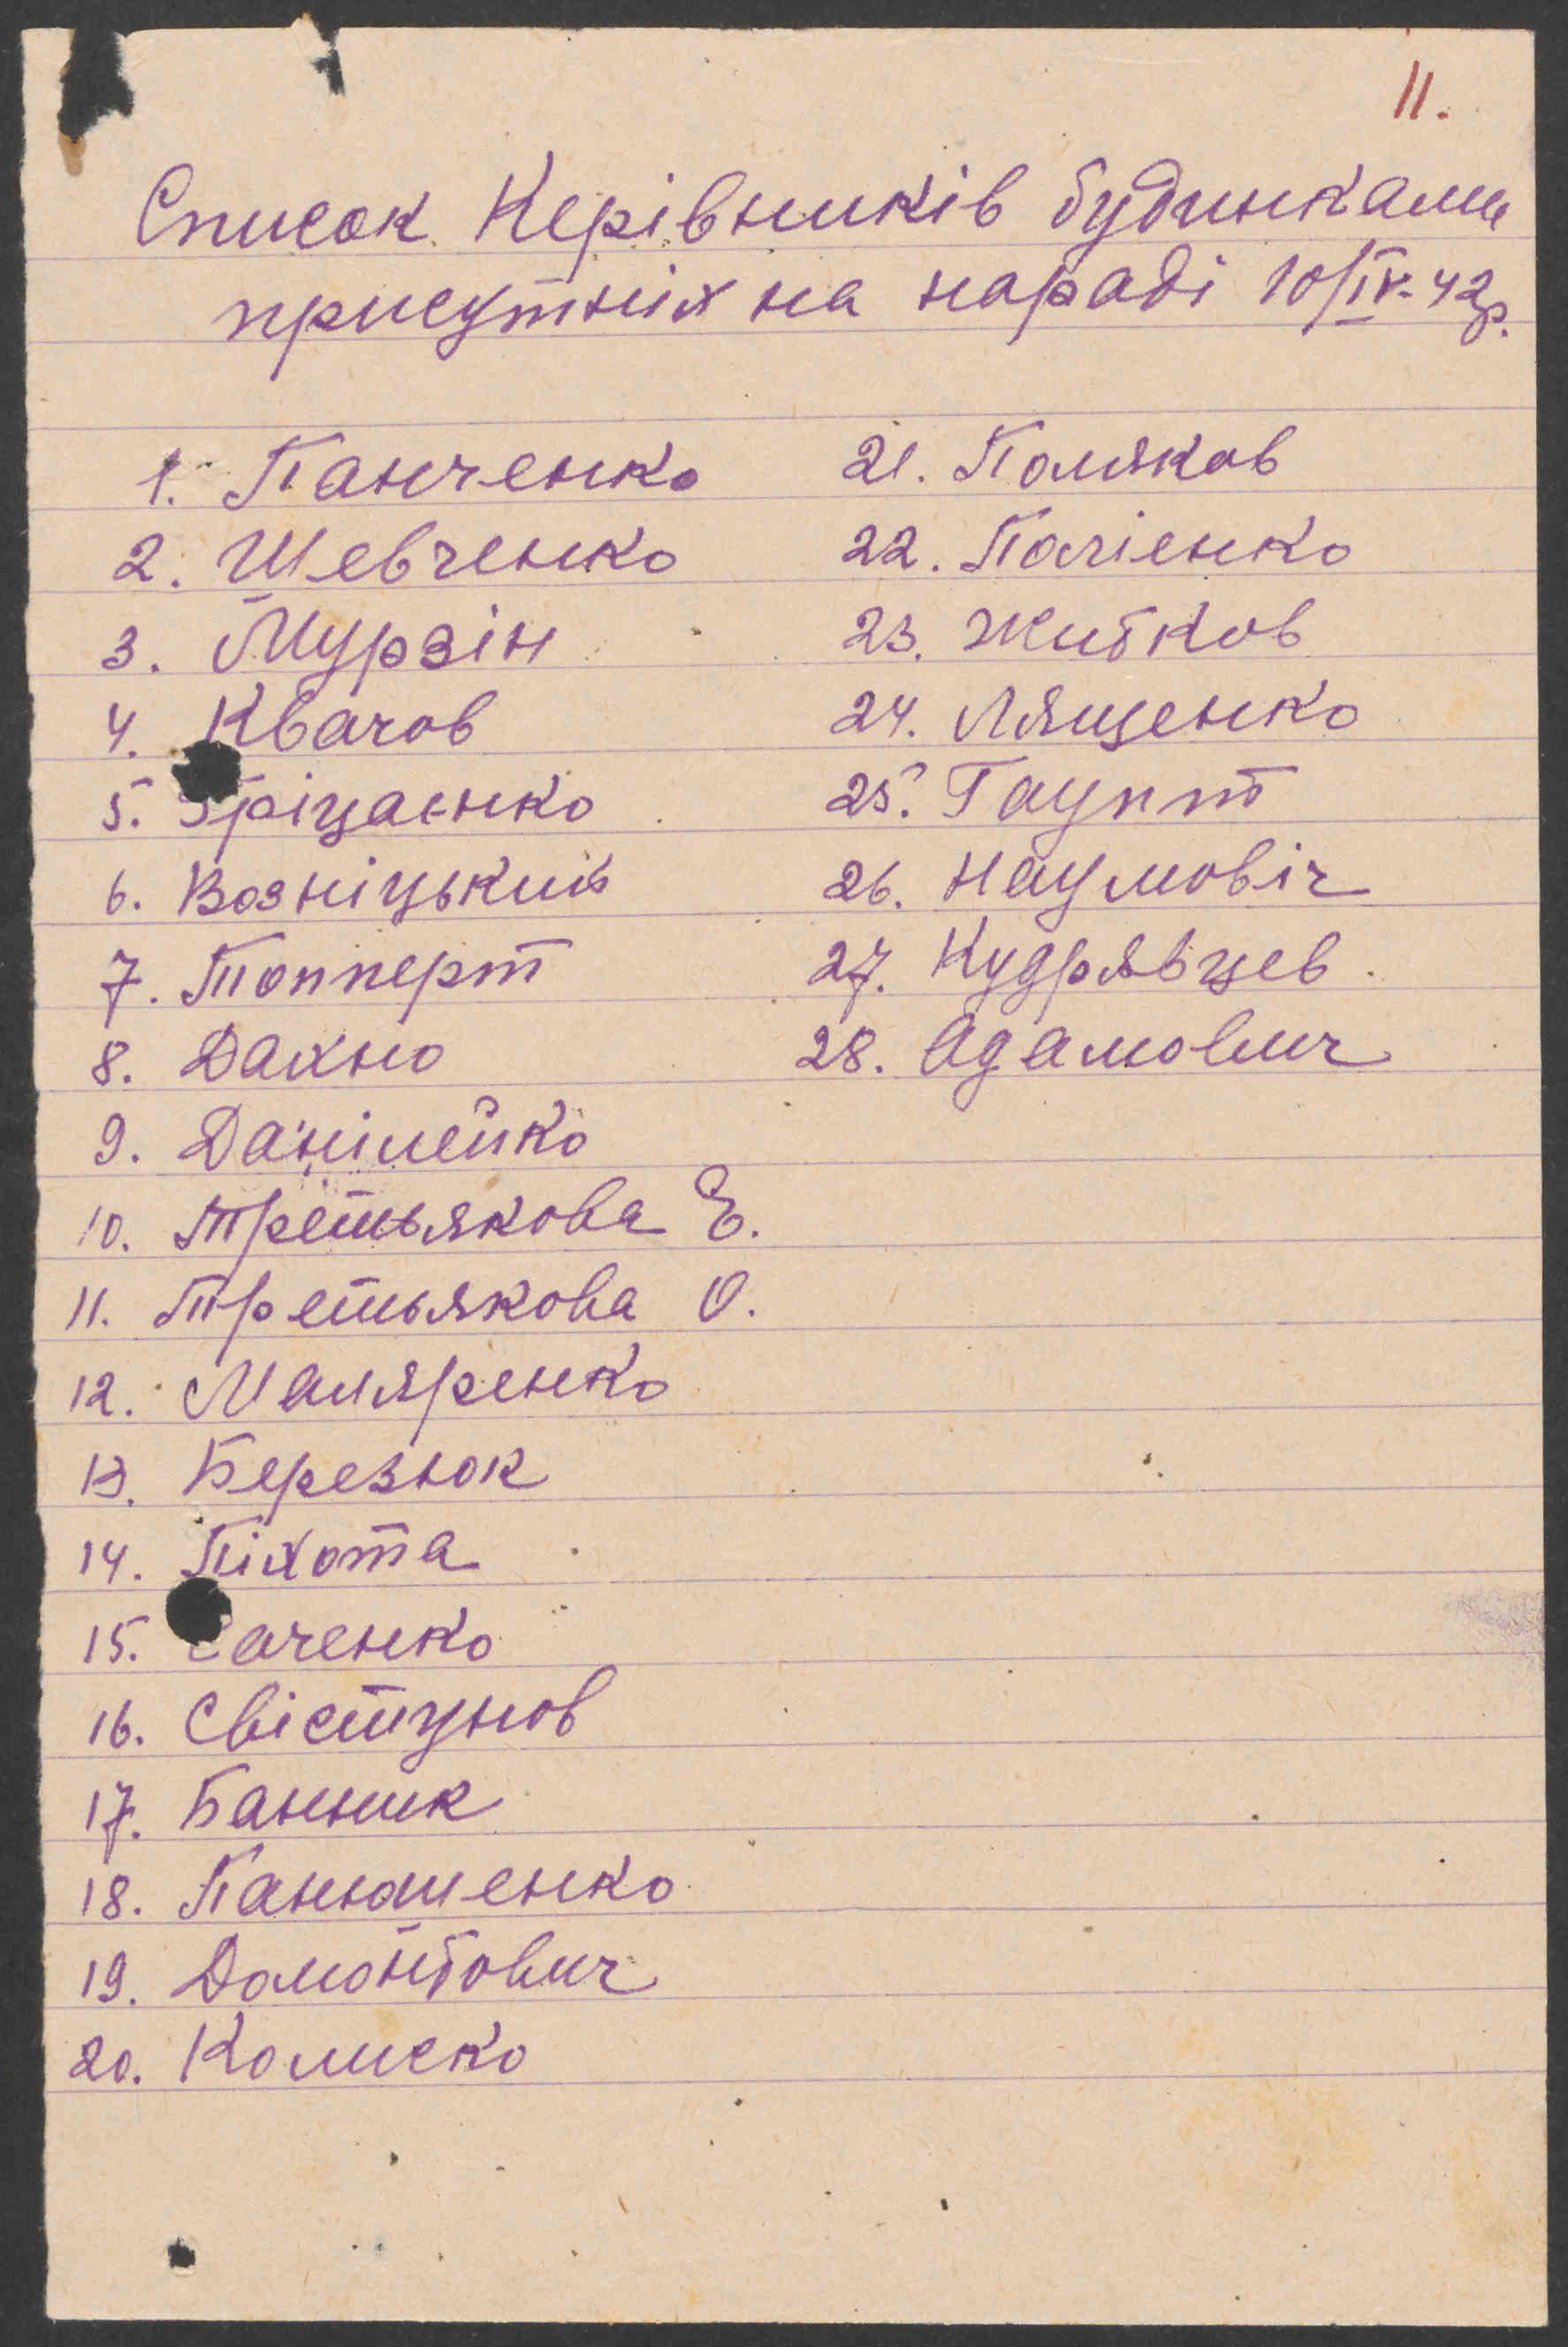 11.
Список Керівників будинками
присутніх на нараді 10/IV-42р.
1. Панченко
2. Шевченко
3. Мурзін
4. Квачов
5. Гріцаєнко
6. Возніцький
7. Топперт
8. Дахно
9. Даніленко
10. Третьякова Е.
11. Третьякова О.
12. Маляренко
13. Березюк
14. Піхота
15. Саченко
16. Свістунов
17. Банник
18. Панюшенко
19. Домонтович
20. Колиско
21. Поляков
22. Палієнко
23. Житков
24. Лященко
25. Гаупт
26. Наумовіч
27. Кудрявцев
28. Адамович